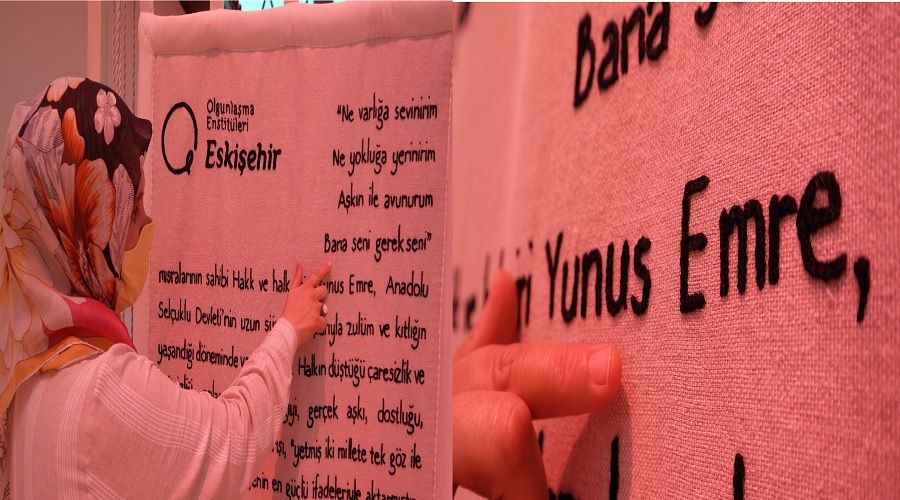 Olgunlaşma
Enstitüleri
Eskişehir
"Ne varlığa sevinirim
Ne yokluğa yerinirim
Aşkın ile avunurum
Bana seni gerek seni"
mısralarının sahibi Hakk ve halk Yunus Emre, Anadolu
Selçuklu Devleti'nin uzun zulüm ve kıtlığın
yaşandığı döneminde Halkın düştüğü çaresizlik ve
gerçek aşkı, dostluğu,
"yetmiş iki millete tek göz ile
en güçlü ifadeleriyle
Bana
Yunus Emre,